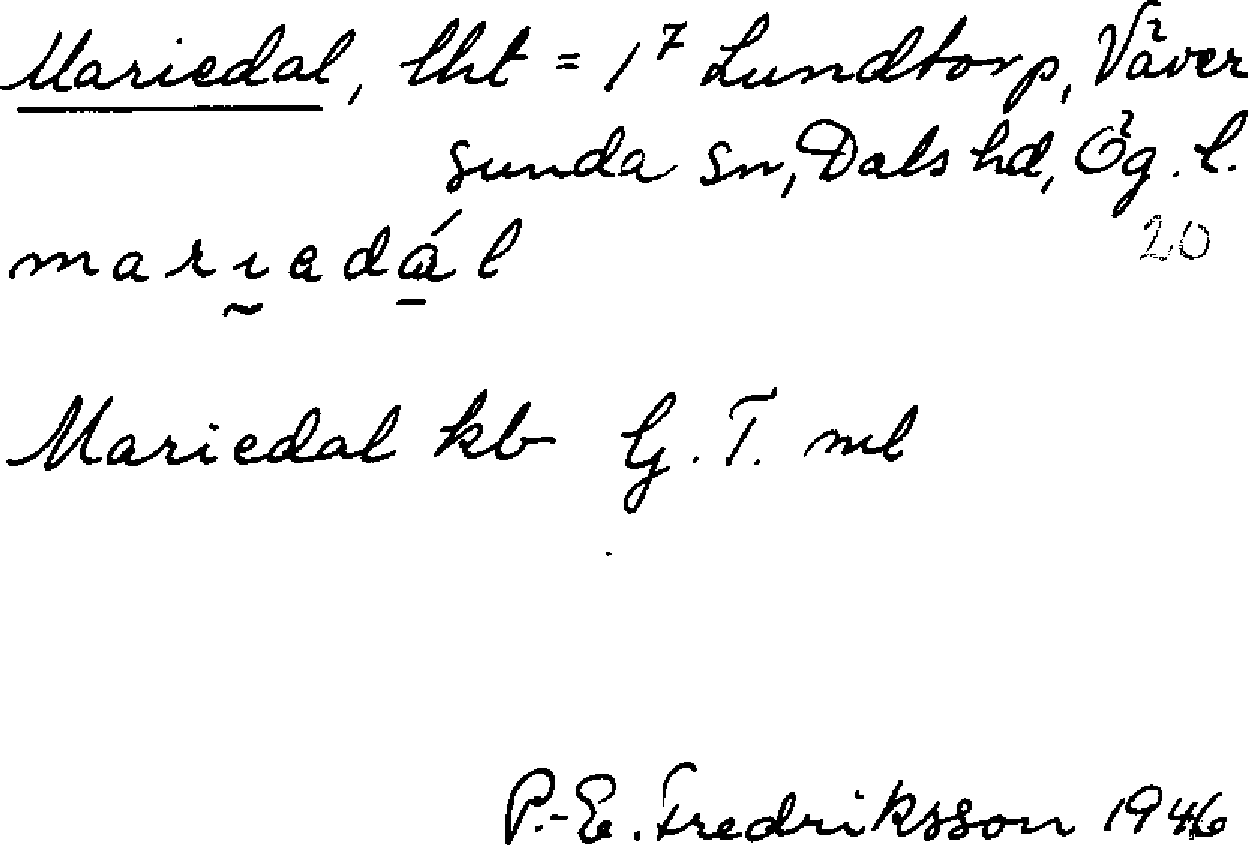 Mariedal, lht = 1⁷ Lundtorp, Väver
sunda sn, Dals hd, Ög. l.
20
marıadál
Mariedal kb G. T. ml
P.-E. Fredriksson 1946